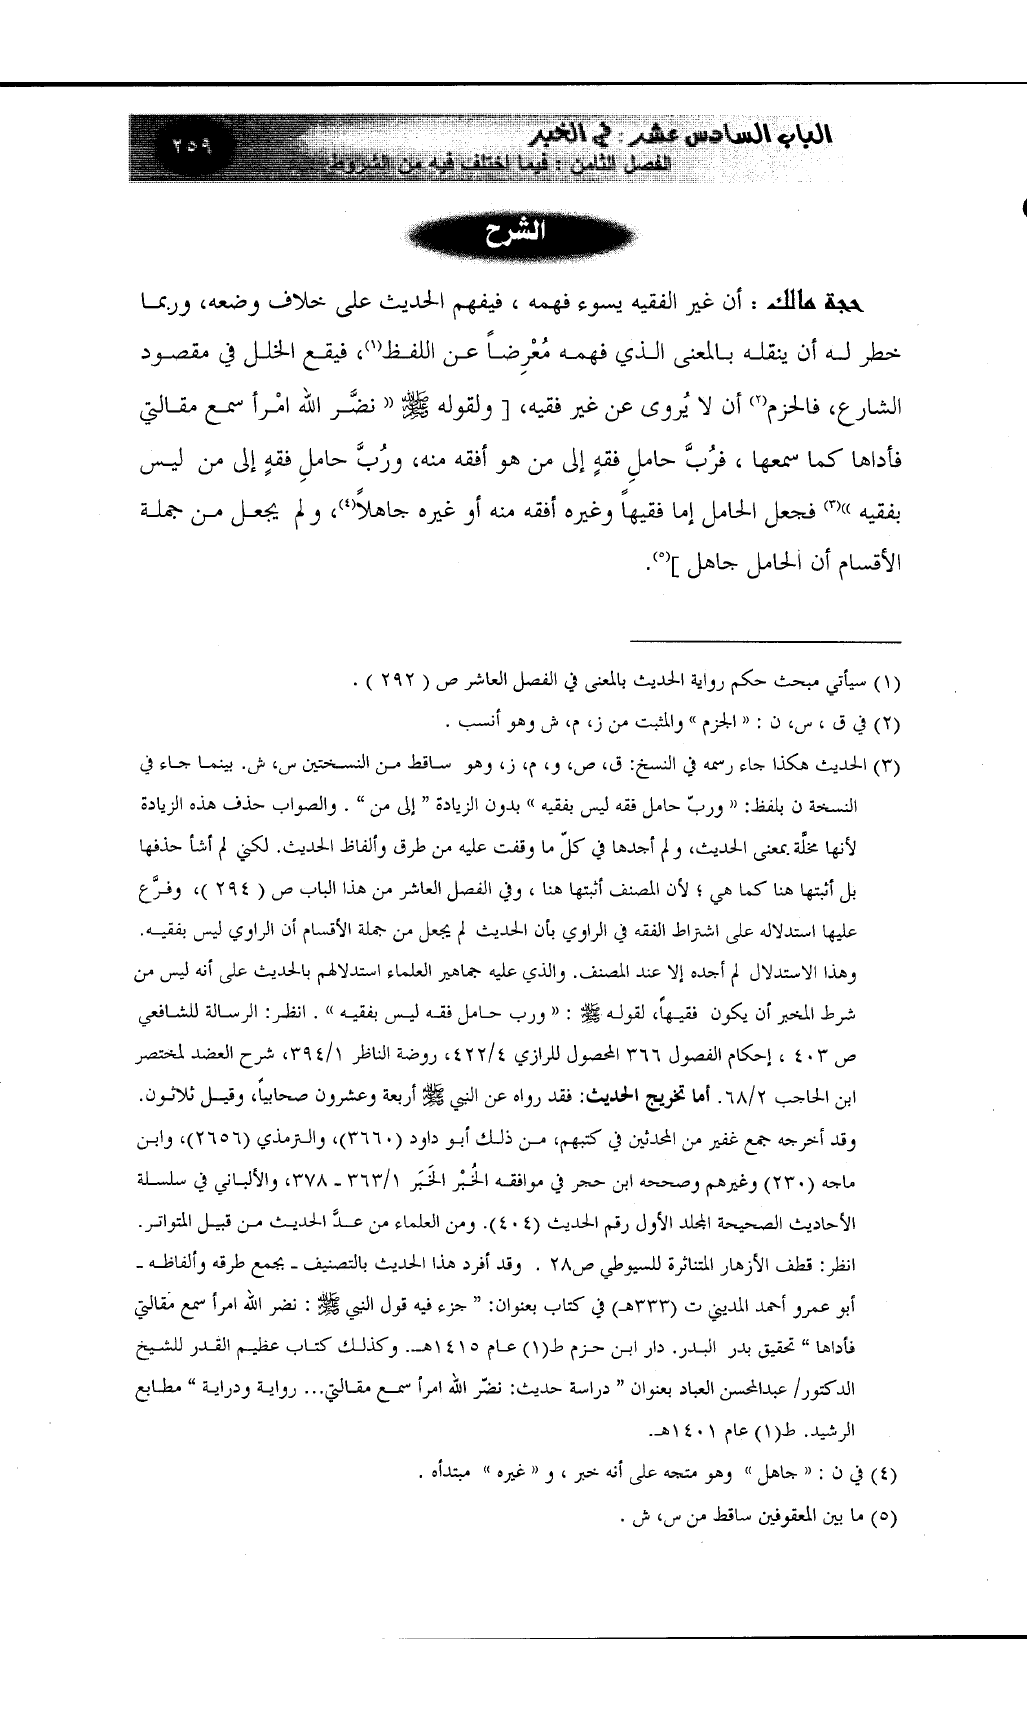 الباب السادس عشر : في الخبر
٢٥٩
الفصل الثامن : فيما اختلف فيه من الشروط
الشرح
حجة مالك : أن غير الفقيه يسوء فهمه ، فيفهم الحديث على خلاف وضعه، وربما
خطر له أن ينقله بالمعنى الذي فهمه مُعْرِضاً عن اللفظ(١)، فيقع الخلل في مقصود
الشارع، فالحزم(٢) أن لا يُروى عن غير فقيه، [ ولقوله ﷺ « نضَّر الله امْرأ سمع مقالتي
فأداها كما سمعها ، فرُبَّ حاملِ فقهٍ إلى من هو أفقه منه، ورُبَّ حاملِ فقهٍ إلى من ليس
بفقيه »(٣) فجعل الحامل إما فقيهاً وغيره أفقه منه أو غيره جاهلاً(٤)، ولم يجعل من جملة
الأقسام أن الحامل جاهل ](٥).
(١) سيأتي مبحث حكم رواية الحديث بالمعنى في الفصل العاشر ص ( ٢٩٢ ) .
(٢) في ق ، س، ن : « الجزم » والمثبت من ز، م، ش وهو أنسب .
(٣) الحديث هكذا جاء رسمه في النسخ: ق، ص، و، م، ز، وهو ساقط من النسختين س، ش. بينما جاء في
النسخة ن بلفظ: « وربّ حامل فقه ليس بفقيه » بدون الزيادة " إلى من " . والصواب حذف هذه الزيادة
لأنها مخلَّة بمعنى الحديث، ولم أجدها في كلّ ما وقفت عليه من طرق وألفاظ الحديث. لكني لم أشأ حذفها
بل أثبتها هنا كما هي ؛ لأن المصنف أثبتها هنا ، وفي الفصل العاشر من هذا الباب ص ( ٢٩٤ )، وفرَّع
عليها استدلاله على اشتراط الفقه في الراوي بأن الحديث لم يجعل من جملة الأقسام أن الراوي ليس بفقيه.
وهذا الاستدلال لم أجده إلا عند المصنف. والذي عليه جماهير العلماء استدلالهم بالحديث على أنه ليس من
شرط المخبر أن يكون فقيهاً، لقوله ﷺ : « ورب حامل فقه ليس بفقيه » . انظر: الرسالة للشافعي
ص ٤٠٣ ، إحكام الفصول ٣٦٦ المحصول للرازي ٤٢٢/٤، روضة الناظر ٣٩٤/١، شرح العضد لمختصر
ابن الحاجب ٦٨/٢. أما تخريج الحديث: فقد رواه عن النبي ﷺ أربعة وعشرون صحابياً، وقيل ثلاثون.
وقد أخرجه جمع غفير من المحدثين في كتبهم، من ذلك أبو داود (٣٦٦٠)، والترمذي (٢٦٥٦)، وابن
ماجه (٢٣٠) وغيرهم وصححه ابن حجر في موافقه الخُبْر الخَبَر ٣٦٣/١ ـ ٣٧٨، والألباني في سلسلة
الأحاديث الصحيحة المجلد الأول رقم الحديث (٤٠٤). ومن العلماء من عدَّ الحديث من قبيل المتواتر.
انظر: قطف الأزهار المتناثرة للسيوطي ص٢٨ . وقد أفرد هذا الحديث بالتصنيف ـ بجمع طرقه وألفاظه ـ
أبو عمرو أحمد المديني ت (٣٣٣هـ) في كتاب بعنوان: " جزء فيه قول النبي ﷺ : نضر الله امرأ سمع مقالتي
فأداها " تحقيق بدر البدر. دار ابن حزم ط(١) عام ١٤١٥هـ. وكذلك كتاب عظيم القدر للشيخ
الدكتور/ عبدالمحسن العباد بعنوان " دراسة حديث: نضّر الله امرأ سمع مقالتي... رواية ودراية " مطابع
الرشيد. ط(١) عام ١٤٠١هـ.
(٤) في ن : « جاهل » وهو متجه على أنه خبر ، و « غيره » مبتدأه .
(٥) ما بين المعقوفين ساقط من س، ش .